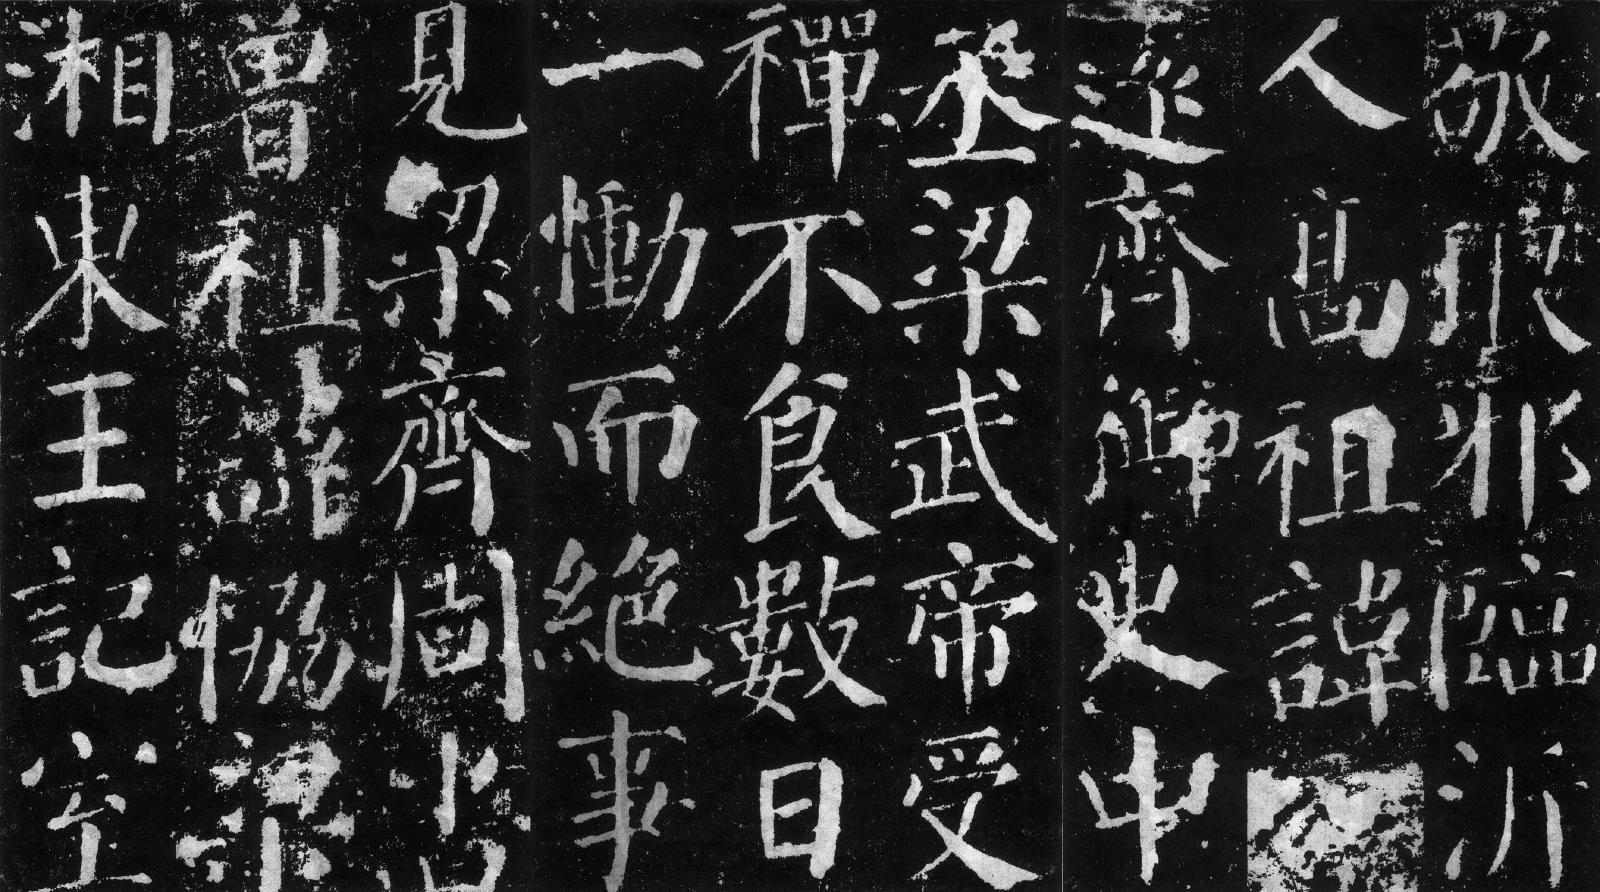 敬琅邪臨沂
人高祖諱
遠齊御史中
丞梁武帝受
禪不食數日
一慟而絕事
見梁齊周書
曾祖諱協梁
湘東王記室